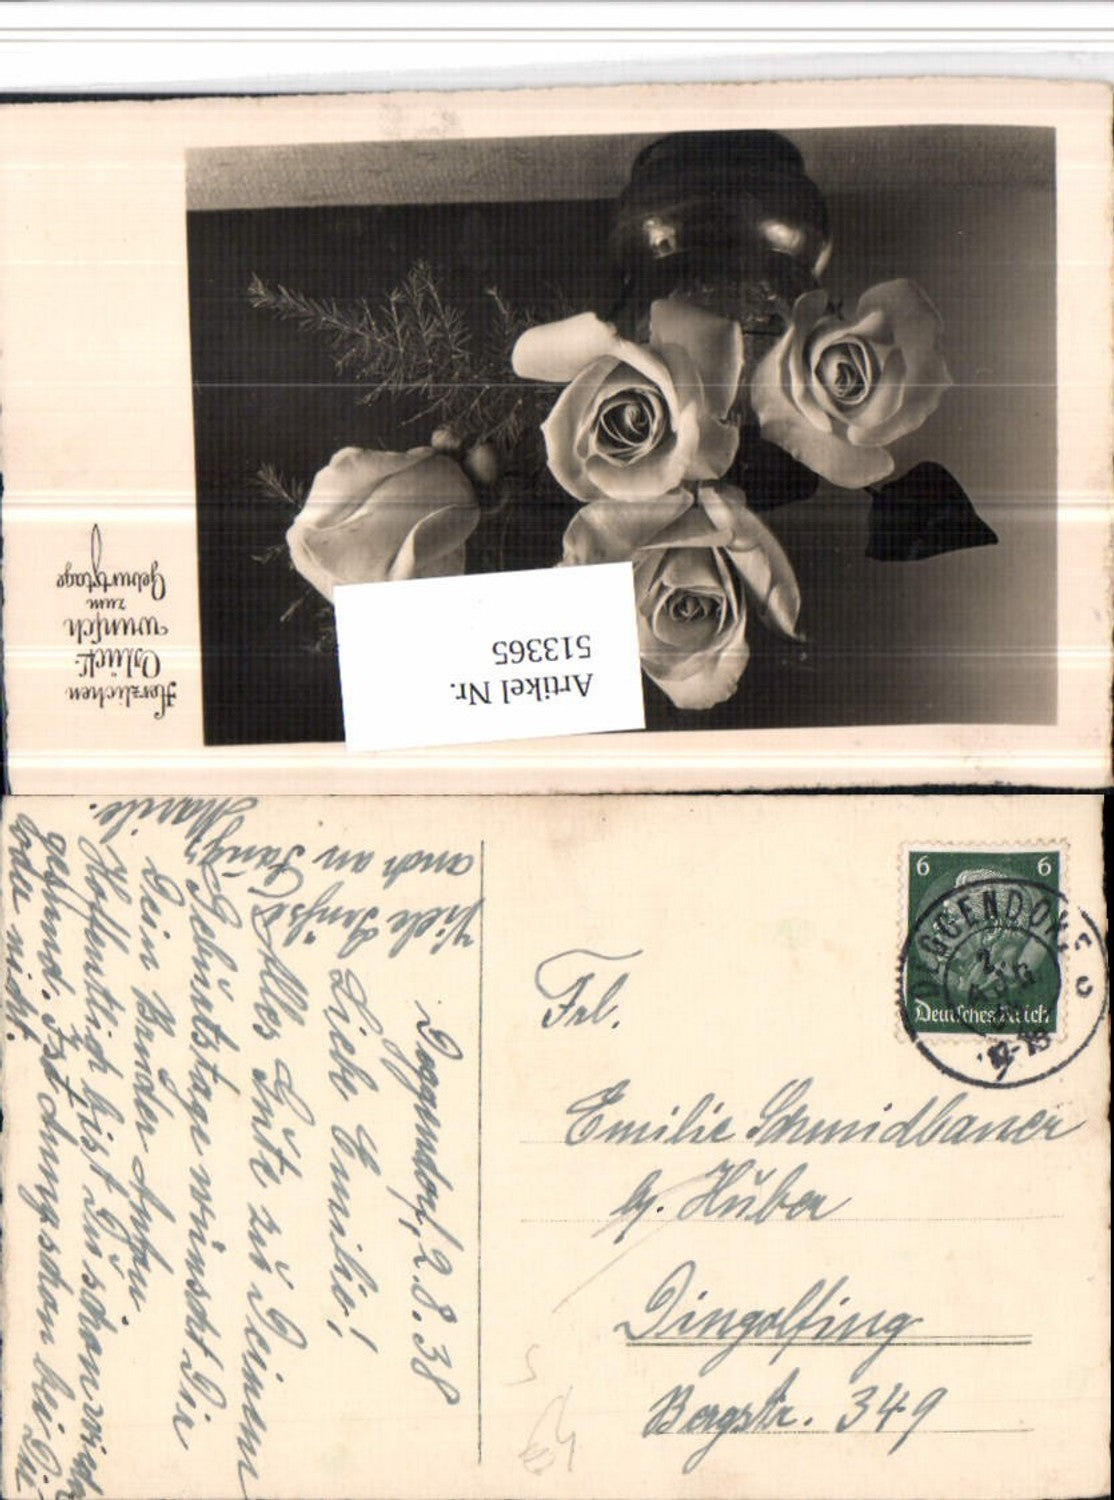 Herzlichen
Glück-
wunsch
zum
Geburtstage
Artikel Nr.
513365
6 6
Deutsches Reich
DEGGENDORF
2.
Deggendorf, 2.8.38
Liebe Emilie!
Alles Gute zu Deinem
Geburtstage wünscht Dir
Dein Bruder Anton.
Hoffentlich bist Du schon wieder
gesund. Ist schon bei Dir
oder nicht.
Viele Grüße
auch an
Marile.
Frl.
Emilie Schmidbauer
b. Huber
Dingolfing
Bergstr. 349